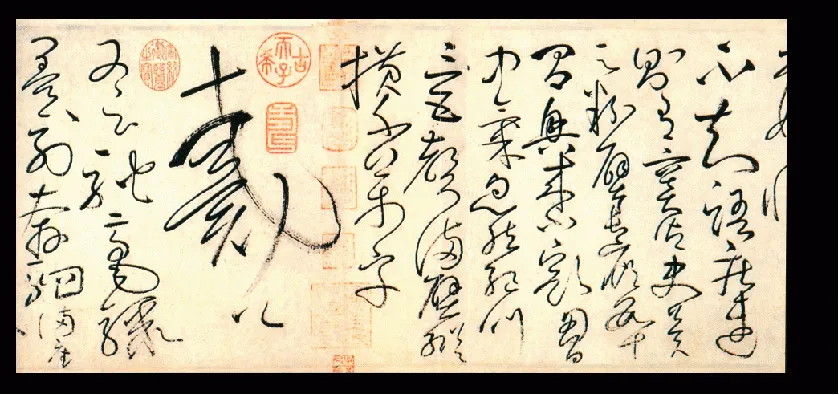 不知語疾迅
則有竇御史冀
云粉壁長廊數十
間興來小豁胸
中氣忽然絕叫
三五聲滿壁縱
橫千萬字
古希天子
戴公
又云馳毫驟
墨列奔駟滿座